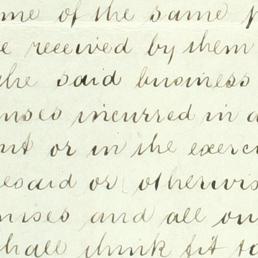 me of the same
e received by them
the said business
nses incurred in a
nt or in the exerci
esaid or otherwis
mises and all ou
hall think fit to